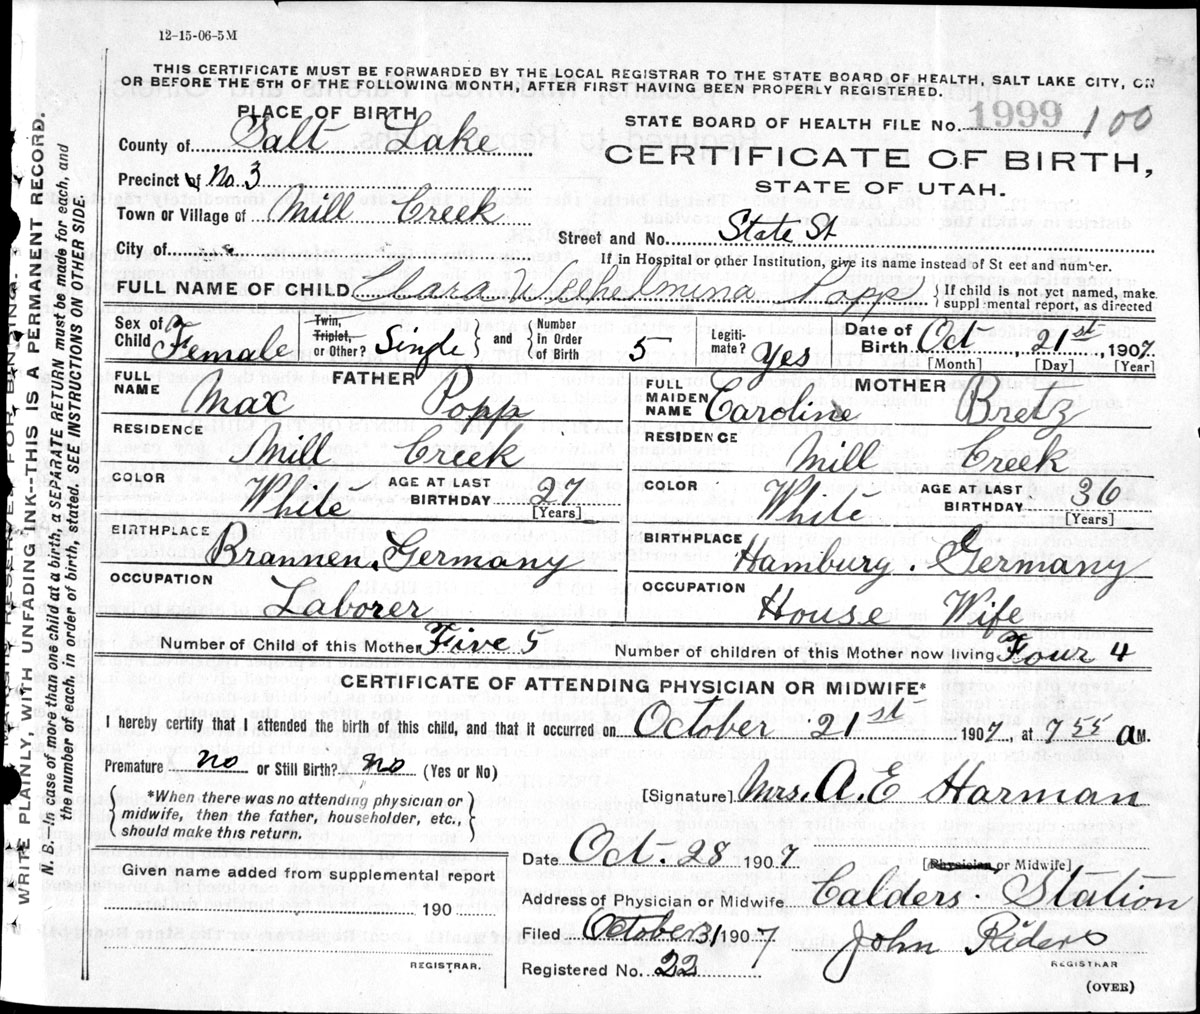 12-15-06-5M
THIS CERTIFICATE MUST BE FORWARDED BY THE LOCAL REGISTRAR TO THE STATE BOARD OF HEALTH, SALT LAKE CITY, ON
OR BEFORE THE 5TH OF THE FOLLOWING MONTH, AFTER FIRST HAVING BEEN PROPERLY REGISTERED.
PLACE OF BIRTH
County of Salt Lake
Precinct of No. 3
Town or Village of Mill Creek
City of
STATE BOARD OF HEALTH FILE No. 1999 100
CERTIFICATE OF BIRTH,
STATE OF UTAH.
Street and No. State St
If in Hospital or other Institution, give its name instead of St eet and number.
FULL NAME OF CHILD Clara Wilhelmina Popp { If child is not yet named, make
suppl mental report, as directed
Sex of Child Female
Twin, Triplet, or Other? Single
and
Number in Order of Birth 5
Legiti-mate? Yes
Date of Birth Oct, 21st, 1907.
[Month] [Day] [Year]
FATHER
FULL NAME Max Popp
RESIDENCE Mill Creek
COLOR White AGE AT LAST BIRTHDAY 27
[Years]
BIRTHPLACE Brannen, Germany
OCCUPATION Laborer
MOTHER
FULL MAIDEN NAME Caroline Bretz
RESIDENCE Mill Creek
COLOR White AGE AT LAST BIRTHDAY 36
[Years]
BIRTHPLACE Hamburg. Germany
OCCUPATION House Wife
Number of Child of this Mother Five 5
Number of children of this Mother now living Four 4
CERTIFICATE OF ATTENDING PHYSICIAN OR MIDWIFE*
I hereby certify that I attended the birth of this child, and that it occurred on October 21st 1907, at 7 55 a M.
Premature no or Still Birth? no (Yes or No)
*When there was no attending physician or
midwife, then the father, householder, etc.,
should make this return.
[Signature] Mrs. A. E Harman
[Physician or Midwife]
Given name added from supplemental report
190
REGISTRAR.
Date Oct. 28 1907
Address of Physician or Midwife Calders. Station
Filed October 31 1907 John Riders
REGISTRAR
Registered No. 22
(OVER)
WRITE PLAINLY WITH UNFADING INK--THIS IS A PERMANENT RECORD.
N. B.—In case of more than one child at a birth, a SEPARATE RETURN must be made for each, and
the number of each, in order of birth, stated. SEE INSTRUCTIONS ON OTHER SIDE.